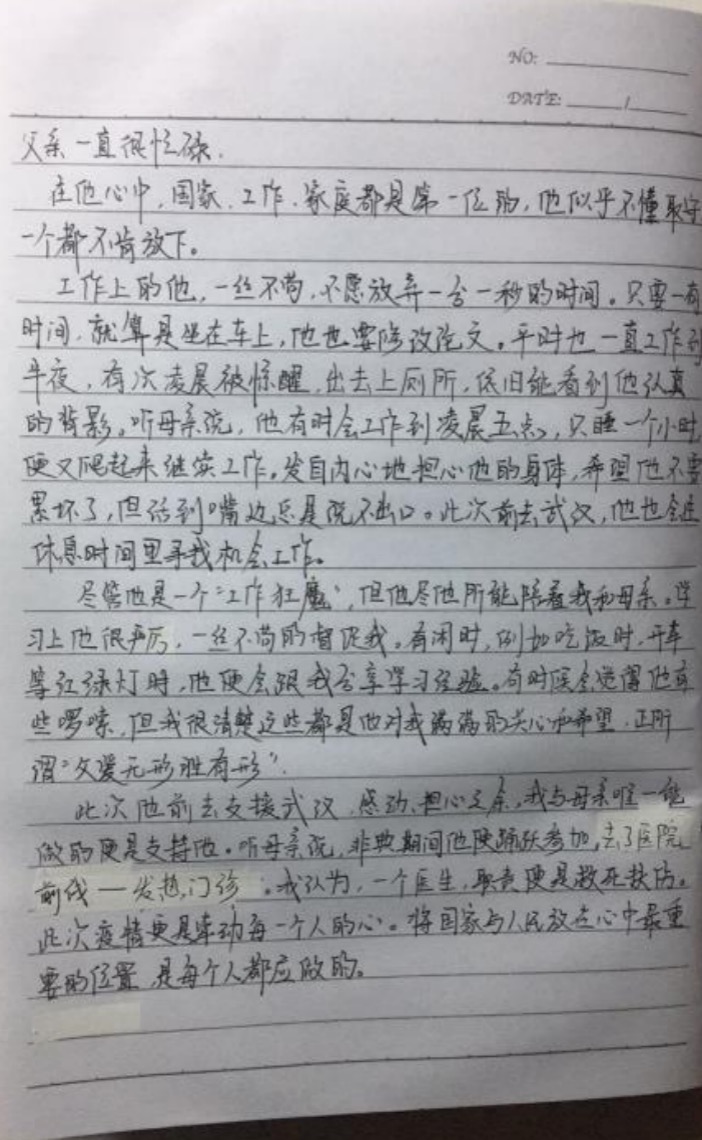 NO:
DATE: /
父亲一直很忙碌.
在他心中,国家、工作、家庭都是第一位的,他似乎不懂取守
一个都不肯放下。
工作上的他,一丝不苟,不愿放弃一分一秒的时间。只要一有
时间,就算是坐在车上,他也要修改论文。平时也一直工作到
半夜,有次凌晨被惊醒,出去上厕所,依旧能看到他认真
的背影。听母亲说,他有时会工作到凌晨五点,只睡一个小时
便又爬起来继续工作。发自内心地担心他的身体,希望他不要
累坏了,但话到嘴边总是说不出口。此次前去武汉,他也会在
休息时间里寻找机会工作。
尽管他是一个“工作狂魔”,但他尽他所能陪着我和母亲。学
习上他很严厉,一丝不苟的督促我。有闲时,例如吃饭时,开车
等红绿灯时,他便会跟我分享学习经验。有时候会觉得他有
些啰嗦,但我很清楚这些都是他对我满满的关心和希望,正所
谓“父爱无形胜有形”.
此次他前去支援武汉,感动、担心之余,我与母亲唯一能
做的便是支持他。听母亲说,非典期间他便踊跃参加,去了医院
前线一发热门诊。我认为,一个医生,职责便是救死扶伤。
此次疫情更是牵动每一个人的心。将国家与人民放在心中最重
要的位置,是每个人都应做的。